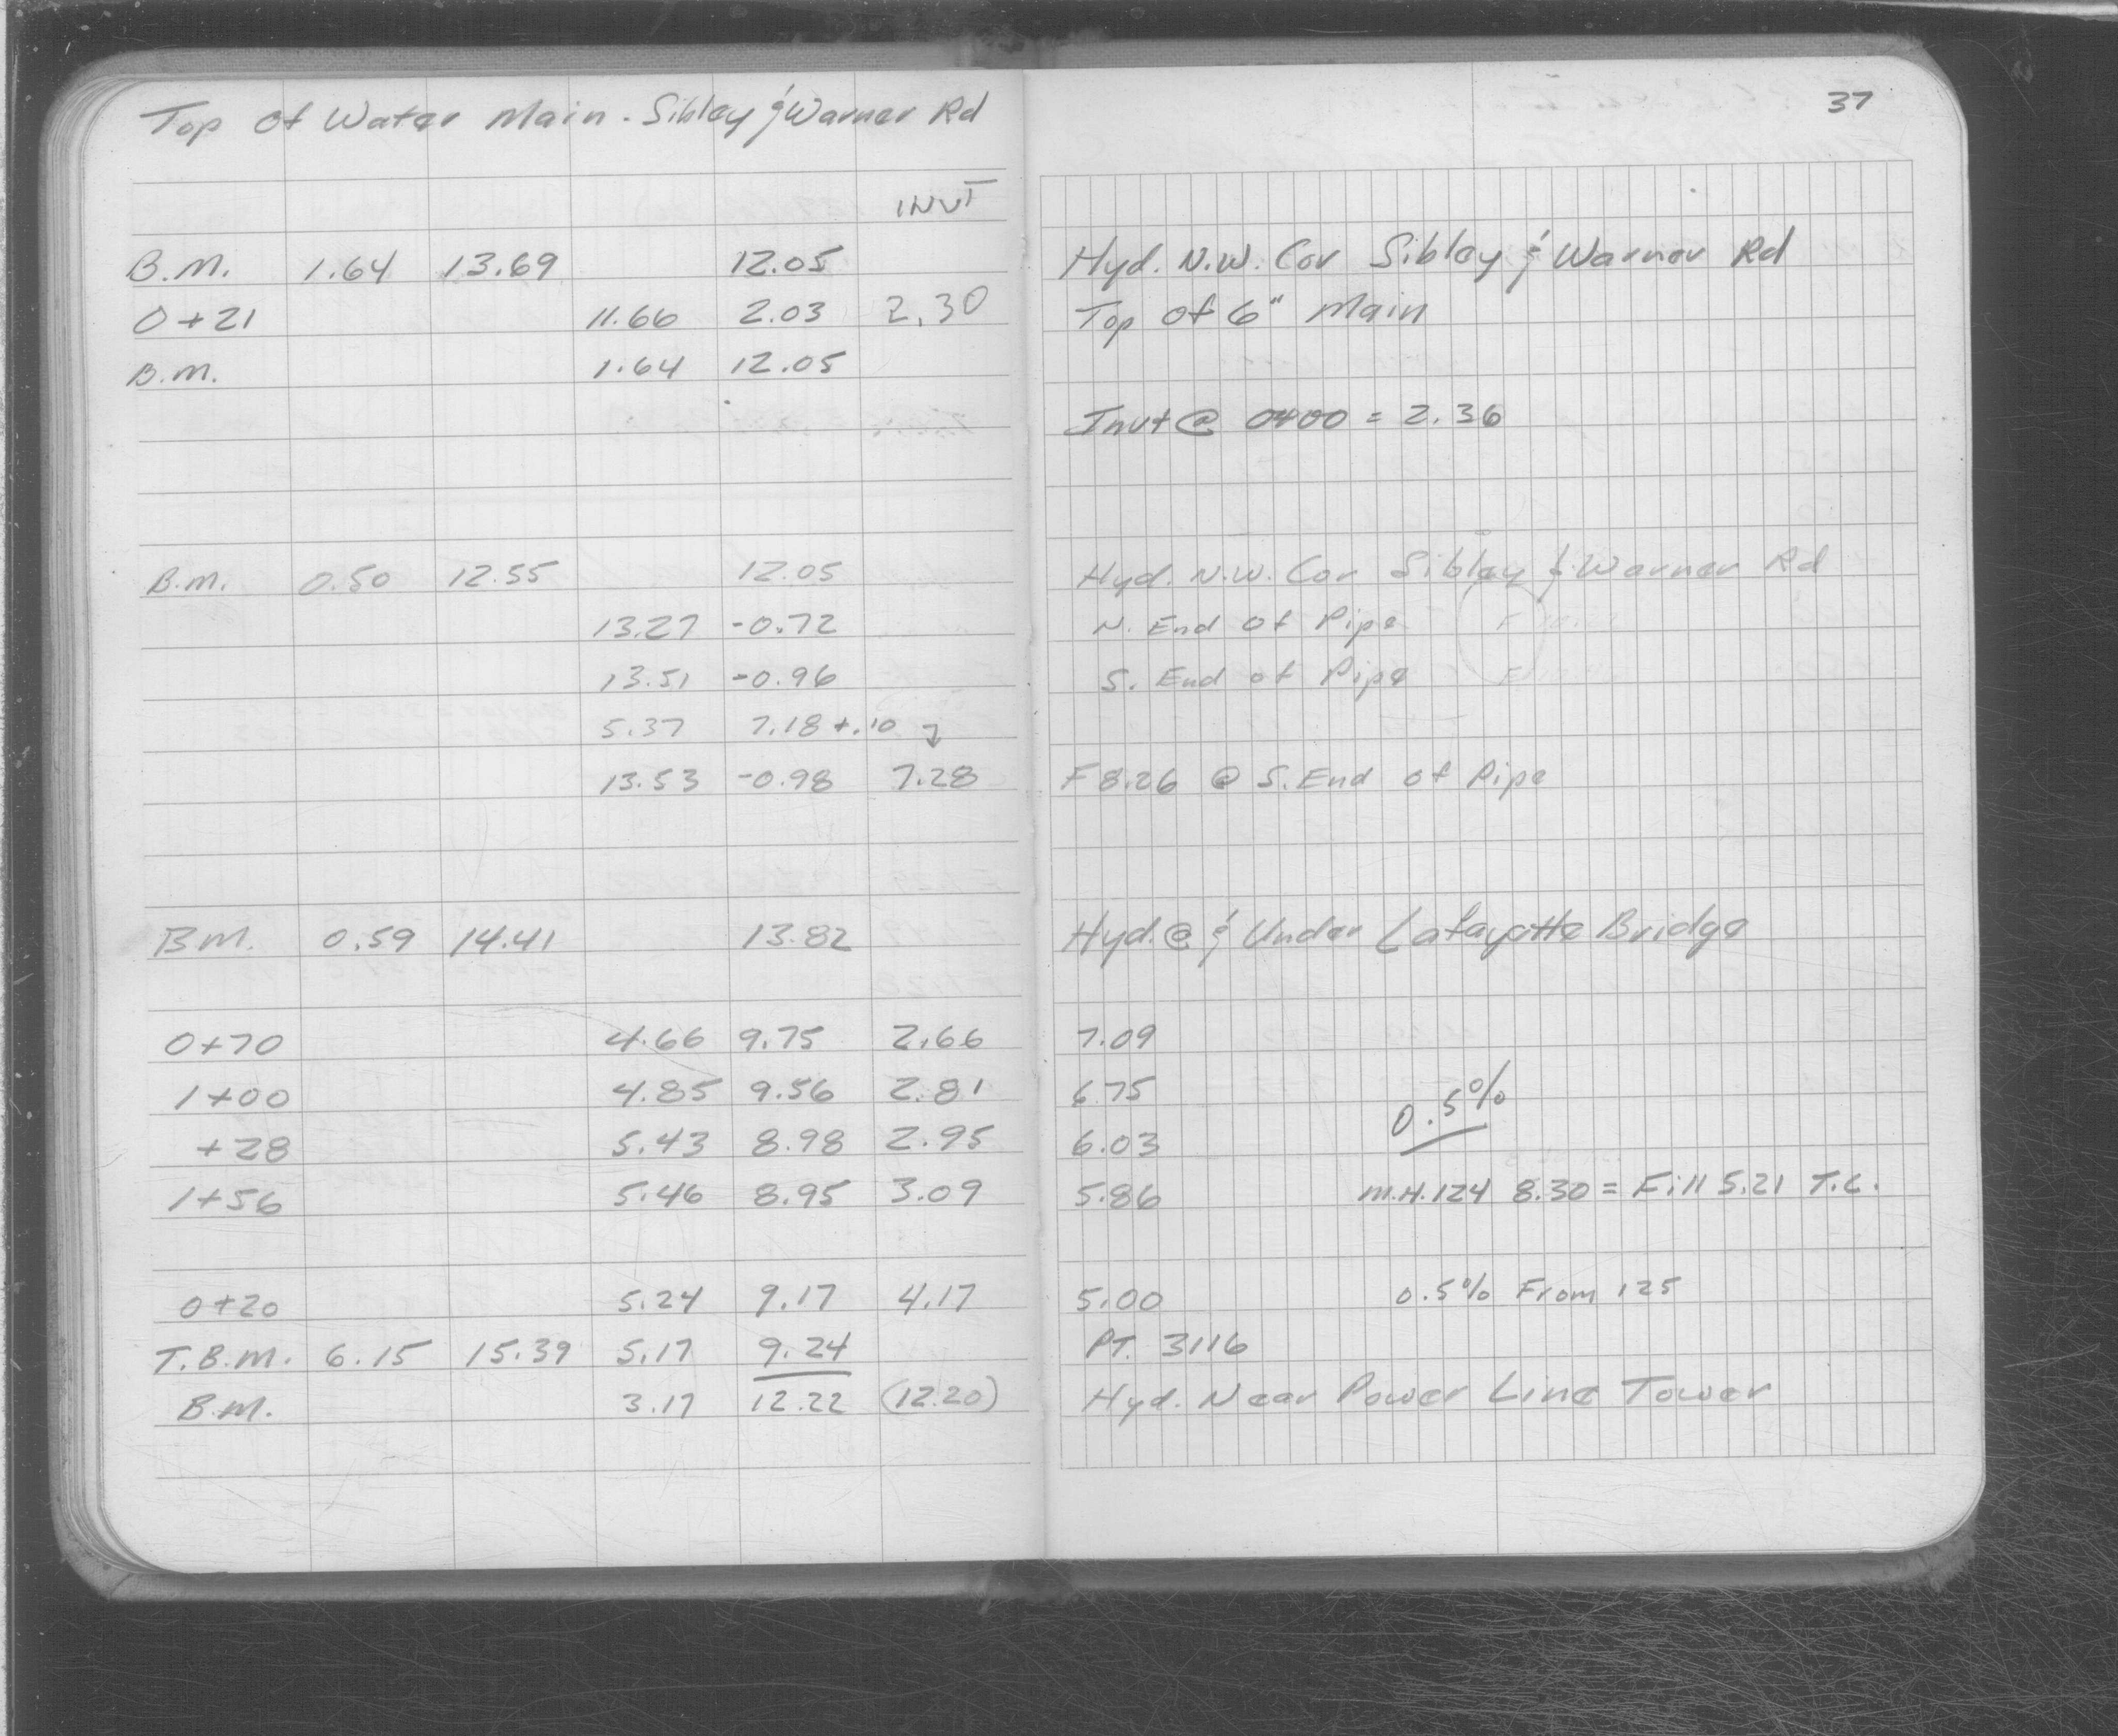 Top of Water Main - Sibley & Warner Rd
37
INVT
B.M. 1.64 13.69 12.05 Hyd. N.W. Cor Sibley & Warner Rd
0+21 11.66 2.03 2.30 Top of 6" Main
B.M. 1.64 12.05
Invt @ 0+00 = 2.36
B.M. 0.50 12.55 12.05 Hyd. N.W. Cor Sibley & Warner Rd
13.27 -0.72 N. End of Pipe
13.51 -0.96 S. End of Pipe
5.37 7.18 +.10
13.53 -0.98 7.28 F 8.26 @ S. End of Pipe
B.M. 0.59 14.41 13.82 Hyd. @ & Under Lafayette Bridge
0+70 4.66 9.75 2.66 7.09
1+00 4.85 9.56 2.81 6.75
0.5%
+28 5.43 8.98 2.95 6.03
1+56 5.46 8.95 3.09 5.86 M.H. 124 8.30 = Fill 5.21 T.C.
0+20 5.24 9.17 4.17 5.00 0.5% From 125
T.B.M. 6.15 15.39 5.17 9.24 PT. 3116
B.M. 3.17 12.22 (12.20) Hyd. Near Power Line Tower